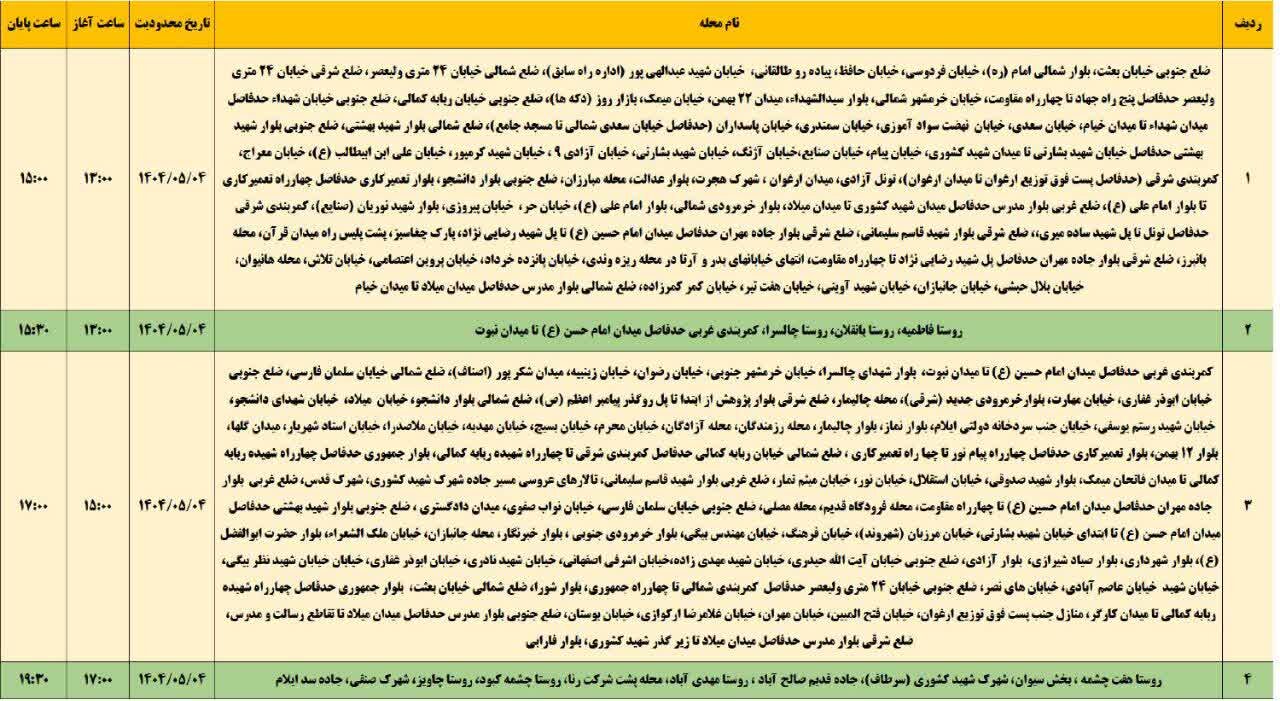 ردیف نام محله تاریخ محدودیت ساعت آغاز ساعت پایان
ضلع جنوبی خیابان بعثت، بلوار شمالی امام (ره)، خیابان فردوسی، خیابان حافظ، پیاده رو طالقانی، خیابان شهید عبدالهی پور (اداره راه سابق)، ضلع شمالی خیابان ۲۴ متری ولیعصر، ضلع شرقی خیابان ۲۴ متری
ولیعصر حدفاصل پنج راه جهاد تا چهارراه مقاومت، خیابان خرمشهر شمالی، بلوار سیدالشهداء، میدان ۲۲ بهمن، خیابان میمک، بازار روز (دکه ها)، ضلع جنوبی خیابان ربابه کمالی، ضلع جنوبی خیابان شهداء حدفاصل
میدان شهداء تا میدان خیام، خیابان سعدی، خیابان نهضت سواد آموزی، خیابان سمندری، خیابان پاسداران (حدفاصل خیابان سعدی شمالی تا مسجد جامع)، ضلع شمالی بلوار شهید بهشتی، ضلع جنوبی بلوار شهید
بهشتی حدفاصل خیابان شهید بشارتی تا میدان شهید کشوری، خیابان پیام، خیابان صنایع،خیابان آژنگ، خیابان شهید بشارتی، خیابان آزادی ۹ ، خیابان شهید کرمپور، خیابان علی ابن ابیطالب (ع)، خیابان معراج،
۱ کمربندی شرقی (حدفاصل پست فوق توزیع ارغوان تا میدان ارغوان)، تونل آزادی، میدان ارغوان ، شهرک هجرت، بلوار عدالت، محله مبارزان، ضلع جنوبی بلوار دانشجو، بلوار تعمیرکاری حدفاصل چهارراه تعمیرکاری ۱۴۰۴/۰۵/۰۴ ۱۳:۰۰ ۱۵:۰۰
تا بلوار امام علی (ع)، ضلع غربی بلوار مدرس حدفاصل میدان شهید کشوری تا میدان میلاد، بلوار خرمرودی شمالی، بلوار امام علی (ع)، خیابان حر، خیابان پیروزی، بلوار شهید نوریان (صنایع)، کمربندی شرقی
حدفاصل تونل تا پل شهید ساده میری،، ضلع شرقی بلوار شهید قاسم سلیمانی، ضلع شرقی بلوار جاده مهران حدفاصل میدان امام حسین (ع) تا پل شهید رضایی نژاد، پارک چغاسبز، پشت پلیس راه میدان قرآن، محله
بانبرز، ضلع شرقی بلوار جاده مهران حدفاصل پل شهید رضایی نژاد تا چهارراه مقاومت، انتهای خیابانهای بدر و آرتا در محله ریزه وندی، خیابان پانزده خرداد، خیابان پروین اعتصامی، خیابان تلاش، محله هانیوان،
خیابان بلال حبشی، خیابان جانبازان، خیابان شهید آوینی، خیابان هفت تیر، خیابان کمر کمرزاده، ضلع شمالی بلوار مدرس حدفاصل میدان میلاد تا میدان خیام
۲ روستا فاطمیه، روستا بانقلان، روستا چالسرا، کمربندی غربی حدفاصل میدان امام حسن (ع) تا میدان نبوت ۱۴۰۴/۰۵/۰۴ ۱۳:۰۰ ۱۵:۳۰
کمربندی غربی حدفاصل میدان امام حسین (ع) تا میدان نبوت، بلوار شهدای چالسرا، خیابان خرمشهر جنوبی، خیابان رضوان، خیابان زینبیه، میدان شکر پور (اصناف)، ضلع شمالی خیابان سلمان فارسی، ضلع جنوبی
خیابان ابوذر غفاری، خیابان مهارت، بلوارخرمرودی جدید (شرقی)، محله چالیمار، ضلع شرقی بلوار پژوهش از ابتدا تا پل روگذر پیامبر اعظم (ص)، ضلع شمالی بلوار دانشجو، خیابان میلاد، خیابان شهدای دانشجو،
خیابان شهید رستم یوسفی، خیابان جنب سردخانه دولتی ایلام، بلوار نماز، بلوار چالیمار، محله رزمندگان، محله آزادگان، خیابان محرم، خیابان بسیج، خیابان مهدیه، خیابان ملاصدرا، خیابان استاد شهریار، میدان گلها،
بلوار ۱۲ بهمن، بلوار تعمیرکاری حدفاصل چهارراه پیام نور تا چها راه تعمیرکاری ، ضلع شمالی خیابان ربابه کمالی حدفاصل کمربندی شرقی تا چهارراه شهیده ربابه کمالی، بلوار جمهوری حدفاصل چهارراه شهیده ربابه
کمالی تا میدان فاتحان میمک، بلوار شهید صدوقی، خیابان استقلال، خیابان نور، خیابان میثم تمار، ضلع غربی بلوار شهید قاسم سلیمانی، تالارهای عروسی مسیر جاده شهرک شهید کشوری، شهرک قدس، ضلع غربی بلوار
۳ جاده مهران حدفاصل میدان امام حسین (ع) تا چهارراه مقاومت، محله فرودگاه قدیم، محله مصلی، ضلع جنوبی خیابان سلمان فارسی، خیابان نواب صفوی، میدان دادگستری ، ضلع جنوبی بلوار شهید بهشتی حدفاصل ۱۴۰۴/۰۵/۰۴ ۱۵:۰۰ ۱۷:۰۰
میدان امام حسن (ع) تا ابتدای خیابان شهید بشارتی، خیابان مرزبان (شهروند)، خیابان فرهنگ، خیابان مهندس بیگی، بلوار خرمرودی جنوبی ، بلوار خبرنگار، محله جانبازان، خیابان ملک الشعراء، بلوار حضرت ابوالفضل
(ع)، بلوار شهرداری، بلوار صیاد شیرازی، بلوار آزادی، ضلع جنوبی خیابان آیت الله حیدری، خیابان شهید مهدی زاده،خیابان اشرفی اصفهانی، خیابان شهید نادری، خیابان ابوذر غفاری، خیابان خیابان شهید نظر بیگی،
خیابان شهید خیابان عاصم آبادی، خیابان های نصر، ضلع جنوبی خیابان ۲۴ متری ولیعصر حدفاصل کمربندی شمالی تا چهارراه جمهوری، بلوار شورا، ضلع شمالی خیابان بعثت، بلوار جمهوری حدفاصل چهارراه شهیده
ربابه کمالی تا میدان کارگر، منازل جنب پست فوق توزیع ارغوان، خیابان فتح المبین، خیابان مهران، خیابان غلامرضا ارکوازی، خیابان بوستان، ضلع جنوبی بلوار مدرس حدفاصل میدان میلاد تا تقاطع رسالت و مدرس،
ضلع شرقی بلوار مدرس حدفاصل میدان میلاد تا زیر گذر شهید کشوری، بلوار فارابی
۴ روستا هفت چشمه ، بخش سیوان، شهرک شهید کشوری (سرطاف)، جاده قدیم صالح آباد ، روستا مهدی آباد، محله پشت شرکت رنا، روستا چشمه کبود، روستا چاویز، شهرک صنفی، جاده سد ایلام ۱۴۰۴/۰۵/۰۴ ۱۷:۰۰ ۱۹:۳۰